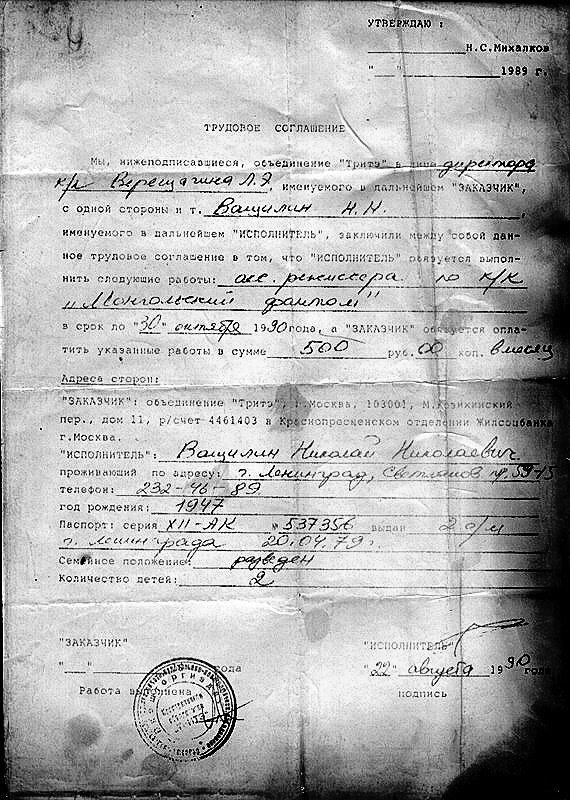 УТВЕРЖДАЮ :
Н.С.Михалков
"__" 1989 г.
ТРУДОВОЕ СОГЛАШЕНИЕ
Мы, нижеподписавшиеся, объединение "Тритэ" в лице директора
к/к Верещагина Л.Э, именуемого в дальнейшем "ЗАКАЗЧИК",
с одной стороны и т. Ващилин Н.Н.
именуемого в дальнейшем "ИСПОЛНИТЕЛЬ", заключили между собой дан-
ное трудовое соглашение в том, что "ИСПОЛНИТЕЛЬ" обязуется выпол-
нить следующие работы: асс. режиссера по к/к
"Монгольский фантом"
в срок по "30" октября 1990года, а "ЗАКАЗЧИК" обязуется опла-
тить указанные работы в сумме 500 руб. 00 коп. в месяц
Адреса сторон:
"ЗАКАЗЧИК": объединение "Тритэ", г.Москва, 103001, М.Козихинский
пер., дом 11, р/счет 4461403 в Краснопресненском отделении Жилсоцбанка
г.Москва.
"ИСПОЛНИТЕЛЬ": Ващилин Николай Николаевич
проживающий по адресу: г. Ленинград, Светланов пр. 59-15
телефон: 232-46-89
год рождения: 1947
Паспорт: серия XII-АК № 537356 выдан 2 о/м
г. Ленинграда 20.04.79г.
Семейное положение: разведен
Количество детей: 2
"ЗАКАЗЧИК" "ИСПОЛНИТЕЛЬ"
"__" года "22" августа 1990 года
Работа выполнена подпись